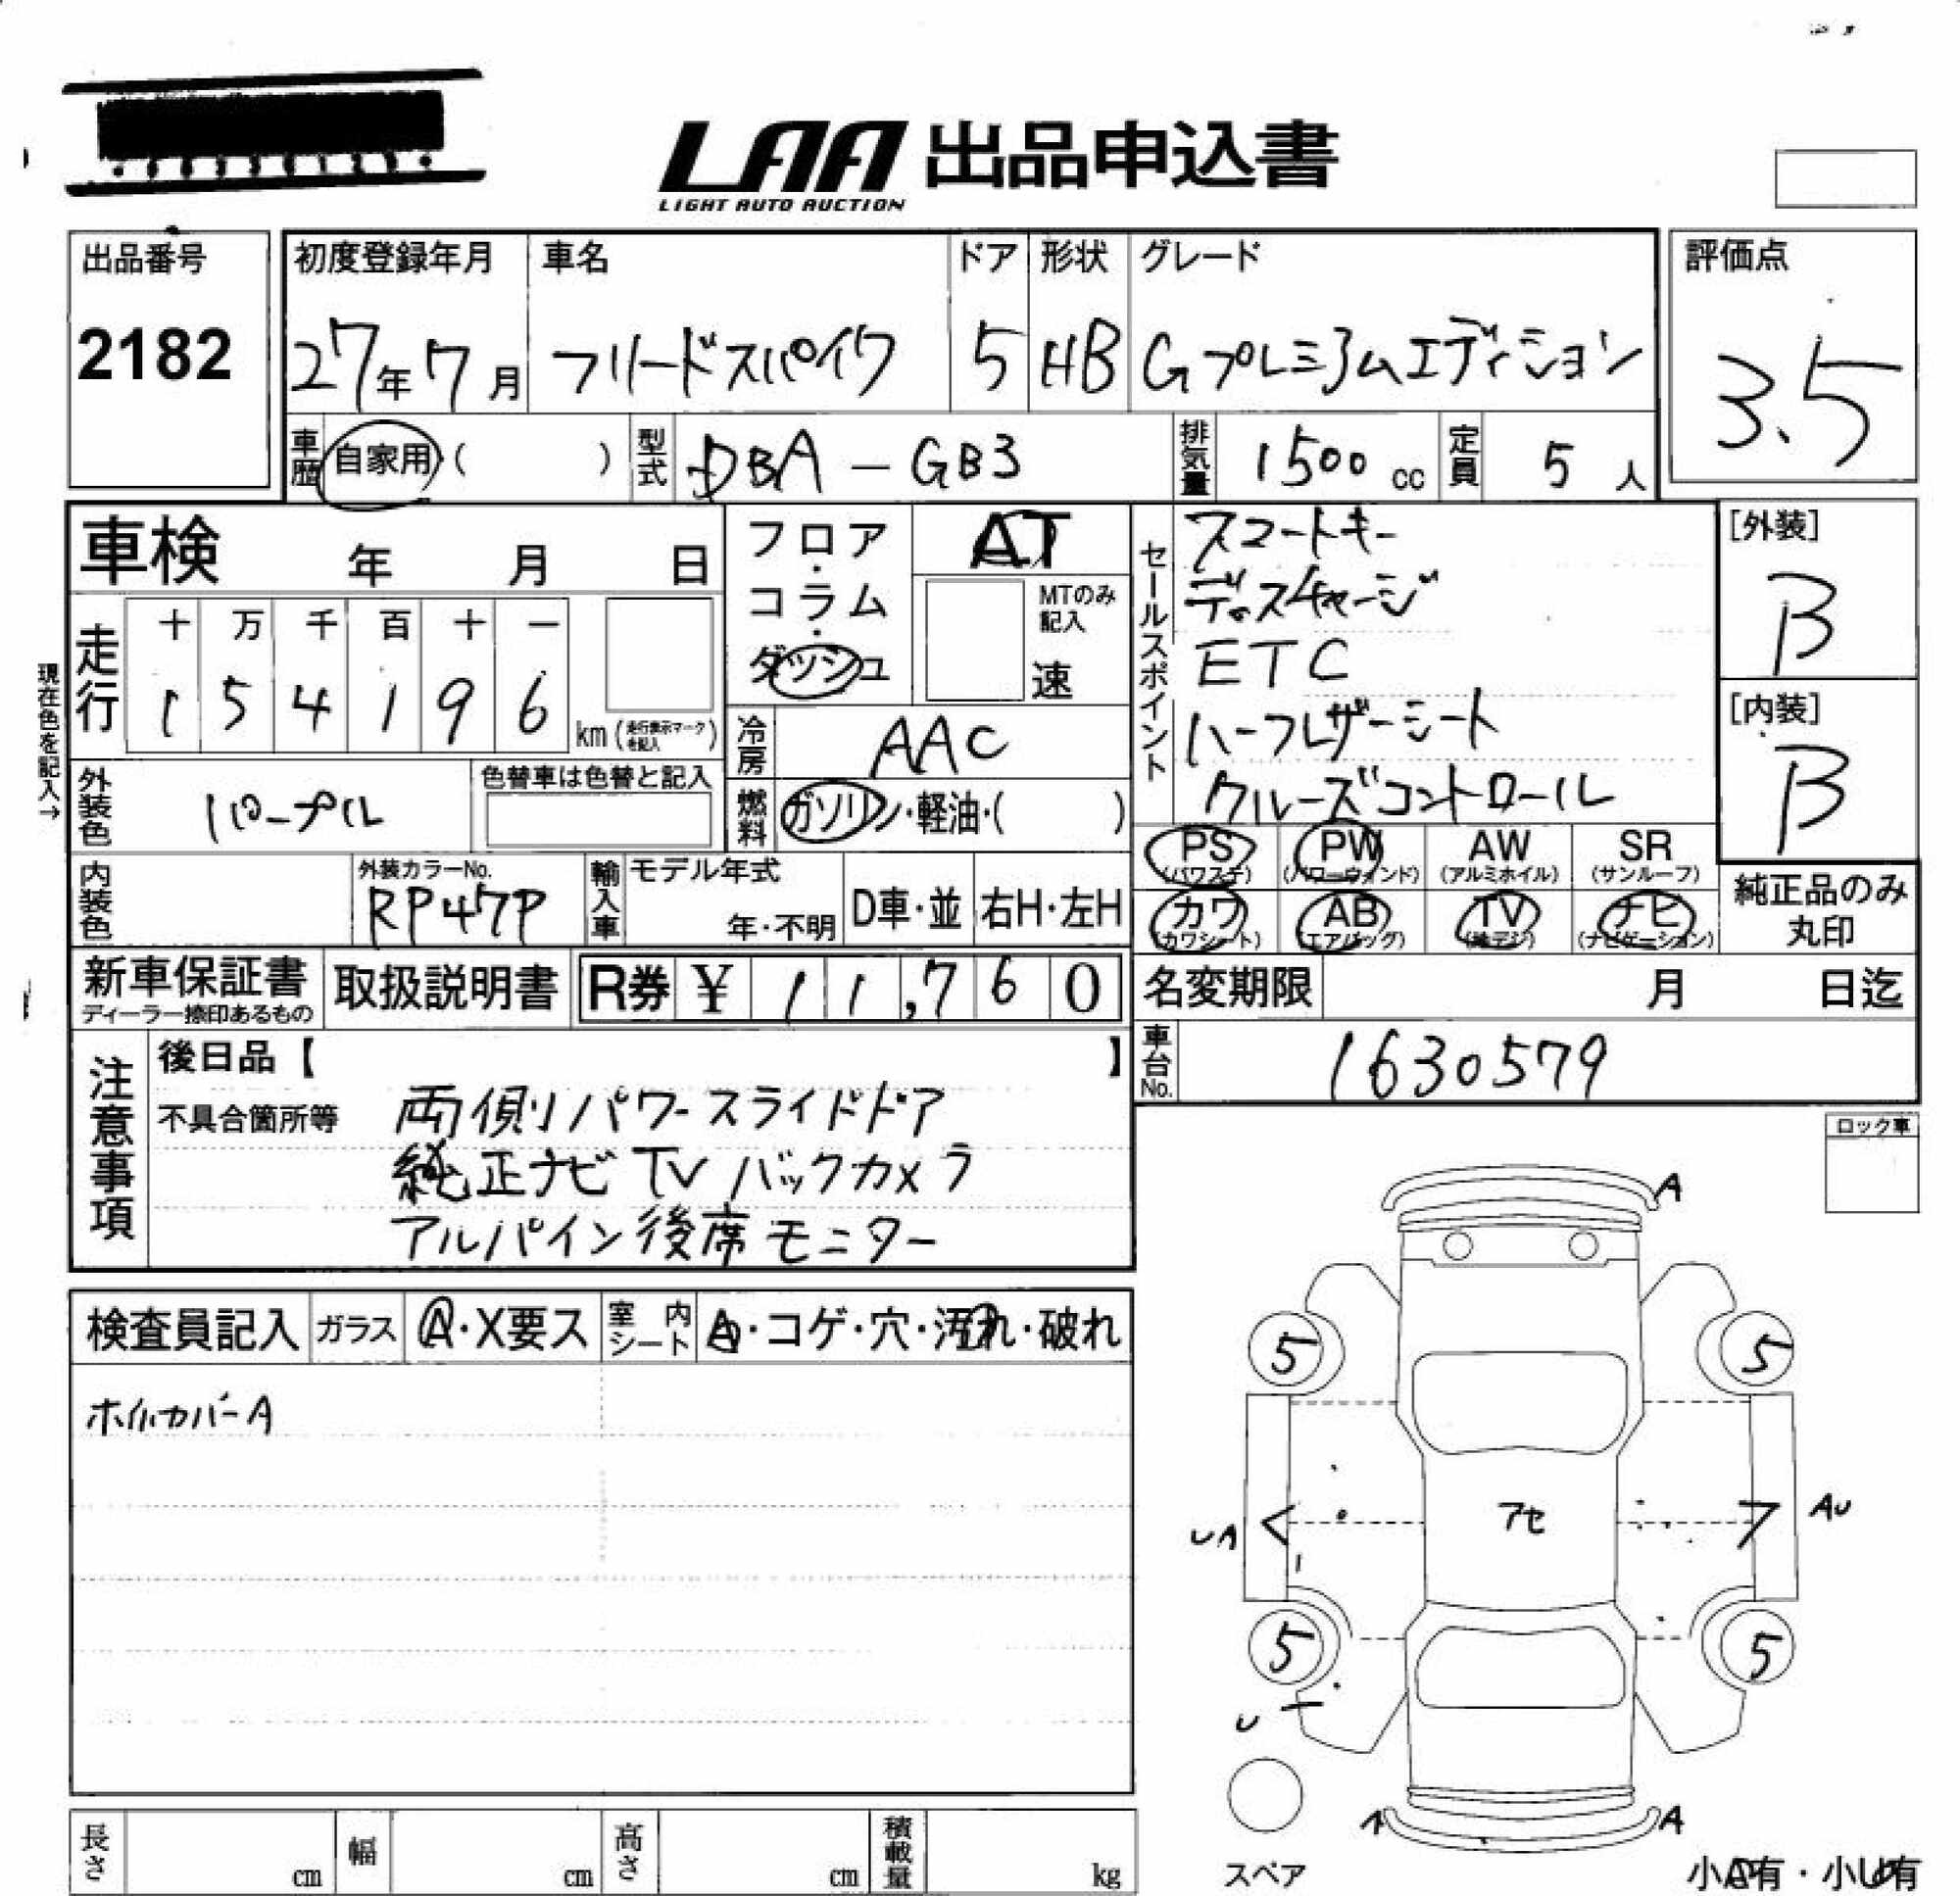 LAA 出品申込書
LIGHT AUTO AUCTION
出品番号
2182
初度登録年月
27年7月
車名
フリードスパイク
ドア
5
形状
HB
グレード
Gプレミアムエディション
評価点
3.5
車歴 自家用 ( )
型式 DBA-GB3
排気量 1500cc
定員 5人
車検 年 月 日
走行
十 万 千 百 十 一
1 5 4 1 9 6
km (走行表示マークを記入)
現在色を記入→
外装色 パープル
色替車は色替と記入
内装色
外装カラーNo.
RP47P
フロア・コラム・ダッシュ
AT
MTのみ記入
速
冷房 AAC
燃料 ガソリン・軽油・( )
輸入車
モデル年式
年・不明
D車・並
右H・左H
セールスポイント
スマートキー
ディスチャージ
ETC
ハーフレザーシート
クルーズコントロール
[外装]
B
[内装]
B
PS (パワステ)
PW (パワーウィンド)
AW (アルミホイル)
SR (サンルーフ)
カワ (カワシート)
AB (エアバッグ)
TV (地デジ)
ナビ (ナビゲーション)
純正品のみ丸印
新車保証書
ディーラー捺印あるもの
取扱説明書
R券 ¥ 11,760
名変期限 月 日迄
車台No. 1630579
注意事項
後日品【 】
不具合箇所等
両側パワースライドドア
純正ナビ TV バックカメラ
アルパイン後席モニター
ロック車
検査員記入
ガラス A・X要ス
室内シート A・コゲ・穴・汚れ・破れ
ホイルカバーA
A
5 5
UA アセ AU
5 5
U
A A
スペア
小A有・小U有
長さ cm
幅 cm
高さ cm
積載量 kg